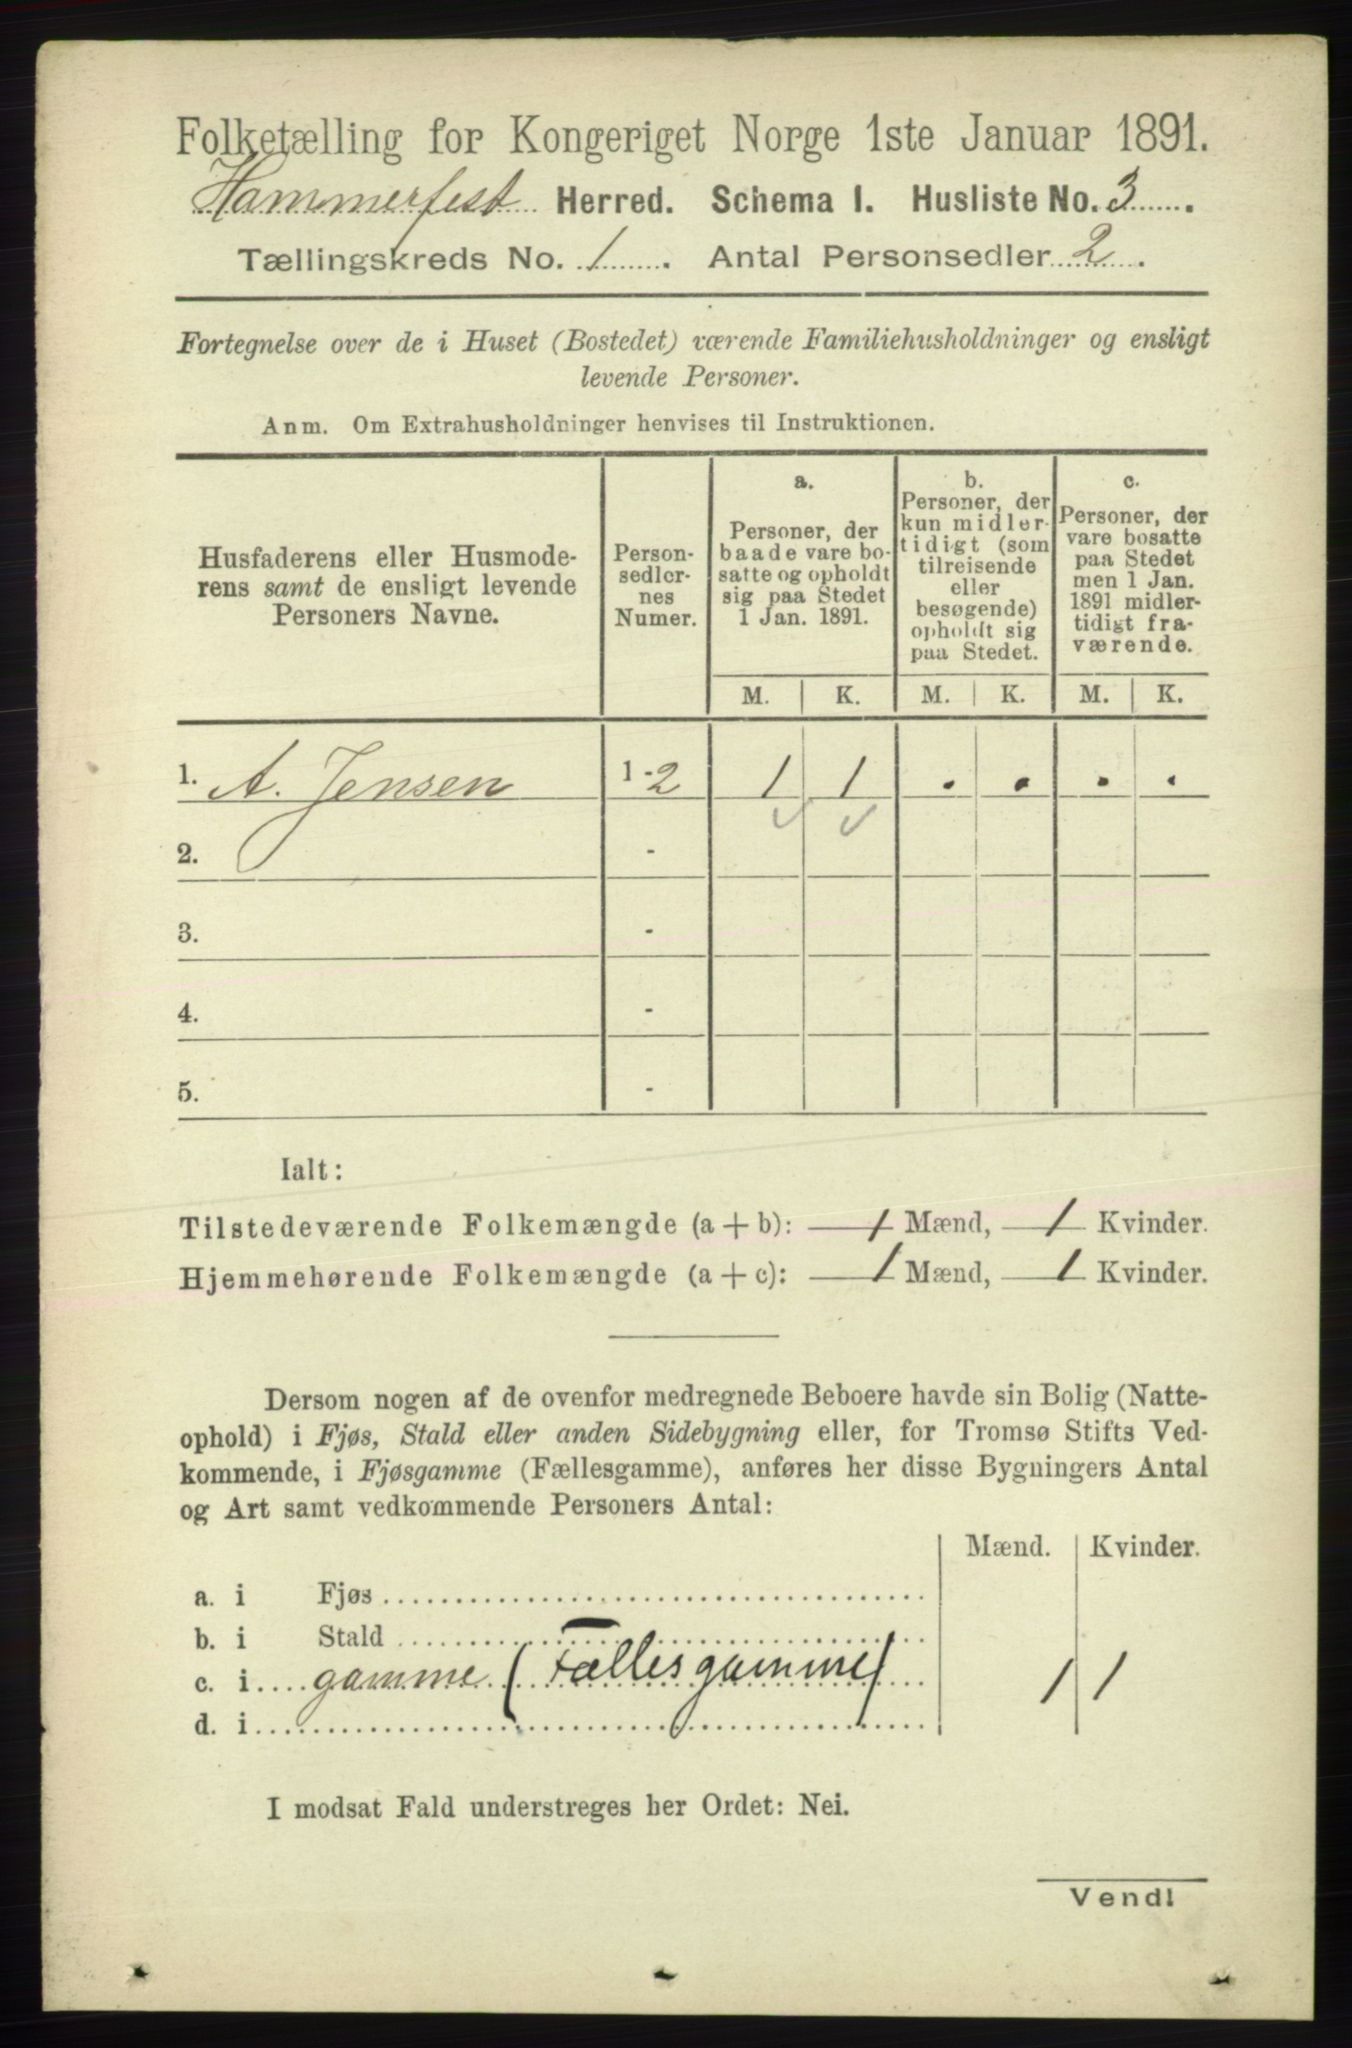 Folketælling for Kongeriget Norge 1ste Januar 1891.
Hammerfest Herred. Schema I. Husliste No. 3.
Tællingskreds No. 1. Antal Personsedler 2.
Fortegnelse over de i Huset (Bostedet) værende Familiehusholdninger og ensligt
levende Personer.
Anm. Om Extrahusholdninger henvises til Instruktionen.
Husfaderens eller Husmode-
rens samt de ensligt levende
Personers Navne.
Person-
sedler-
nes
Numer.
a.
Personer, der
baade vare bo-
satte og opholdt
sig paa Stedet
1 Jan. 1891.
b.
Personer, der
kun midler-
tidigt (som
tilreisende
eller
besøgende)
opholdt sig
paa Stedet.
c.
Personer, der
vare bosatte
paa Stedet
men 1 Jan.
1891 midler-
tidigt fra-
værende.
M. K. M. K. M. K.
1. A. Jensen 1-2 1 1 . . . .
2. -
3. -
4. -
5. -
Ialt:
Tilstedeværende Folkemængde (a + b): 1 Mænd, 1 Kvinder.
Hjemmehørende Folkemængde (a + c): 1 Mænd, 1 Kvinder.
Dersom nogen af de ovenfor medregnede Beboere havde sin Bolig (Natte-
ophold) i Fjøs, Stald eller anden Sidebygning eller, for Tromsø Stifts Ved-
kommende, i Fjøsgamme (Fællesgamme), anføres her disse Bygningers Antal
og Art samt vedkommende Personers Antal:
Mænd. Kvinder.
a. i Fjøs
b. i Stald
c. i gamme (Fællesgamme) 1 1
d. i
I modsat Fald understreges her Ordet: Nei.
Vend!